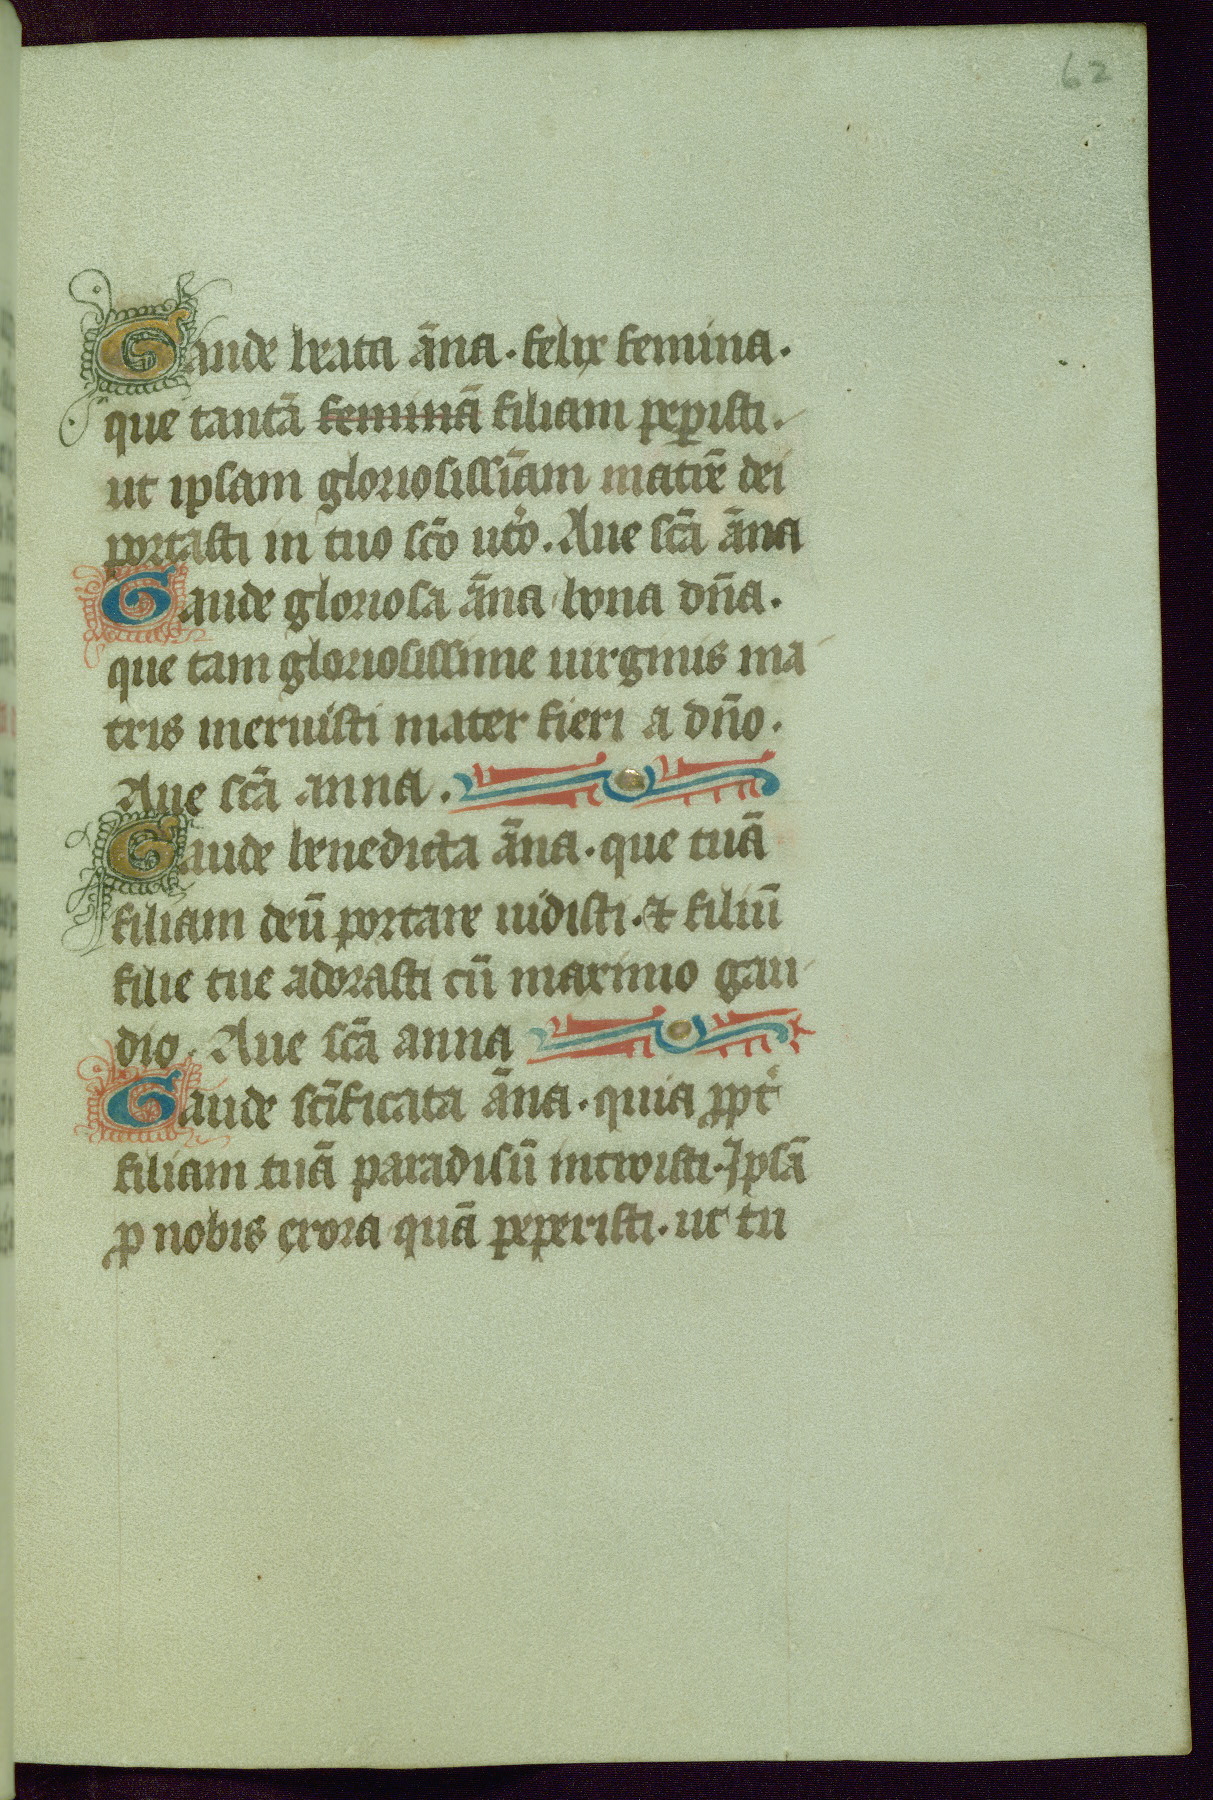 62
Gaude beata āna. felix femina.
que tantā feminā filiam peꝑisti.
ut ipsam gloriosissīam matrē dei
portasti in tuo scō utͦo. Aue scā āna
Gaude gloriosa āna bona dn̄a.
que tam gloriosissime uirginis ma
tris meruisti mater fieri a dn̄o.
Aue scā anna.
Gaude benedicta āna. que tuā
filiam deū portare uidisti. ⁊ filiū
filie tue adorasti cū maximo gau
dio. Aue scā anna
Gaude scīficata āna. quia ꝓpt̉
filiam tuā paradisū introisti. Ipsā
ꝓ nobis exora quā peperisti. ut tu